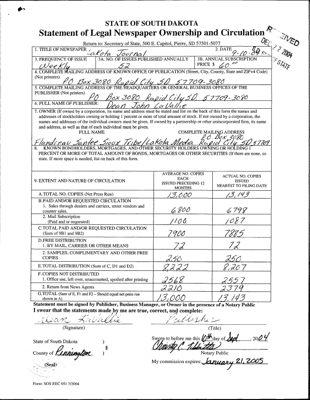 STATE OF SOUTH DAKOTA
Statement of Legal Newspaper Ownership and Circulation
Return to Secretary of State, 500 E. Capitol, Pierre, SD 57501-5077
1. TITLE OF NEWSPAPER Lakota Journal
2. DATE 9-10-
3. FREQUENCY OF ISSUE Weekly
3A. NO. OF ISSUES PUBLISHED ANNUALLY 52
3B. ANNUAL SUBSCRIPTION PRICE $ 60.00
4. COMPLETE MAILING ADDRESS OF KNOWN OFFICE OF PUBLICATION (Street, City, County, State and ZIP+4 Code) (Not printers)
P.O. Box 3080 Rapid City SD 57709-3080
5. COMPLETE MAILING ADDRESS OF THE HEADQUARTERS OR GENERAL BUSINESS OFFICES OF THE PUBLISHER (Not printers)
P.O. Box 3080 Rapid City SD 57709-3080
6. FULL NAME OF PUBLISHER: Dean John LaVallie
7. OWNER (If owned by a corporation, its name and address must be stated and
addresses of stockholders owning or holding 1 percent or more of total amount of stock. If not owned by a corporation, the
names and addresses of the individual owners must be given. If owned by a partnership or other unincorporated firm, its name
and address, as well as that of each individual must be given.
FULL NAME COMPLETE MAILING ADDRESS
P.O. Box 3080
Flandreau Santee Sioux Tribe/Lakota Media Rapid City SD 57709
8. KNOWN BONDHOLDERS, MORTGAGES, AND OTHER SECURITY HOLDERS OWNING OR HOLDING 1
PERCENT OR MORE OF TOTAL AMOUNT OF BONDS, MORTGAGES OR OTHER SECURITIES (If there are none, so
state. If more space is needed, list on back of this form.
9. EXTENT AND NATURE OF CIRCULATION
AVERAGE NO. COPIES EACH ISSUED PRECEDING 12 MONTHS
ACTUAL NO. COPIES ISSUED NEAREST TO FILING DATE
A. TOTAL NO. COPIES (Net Press Run) 13,000 13,143
B. PAID AND/OR REQUESTED CIRCULATION
1. Sales through dealers and carriers, street vendors and counter sales. 6800 6798
2. Mail Subscription (Paid and/or requested) 1100 1087
C. TOTAL PAID AND/OR REQUESTED CIRCULATION (Sum of 9B1 and 9B2) 7900 7885
D. FREE DISTRIBUTION
1. BY MAIL, CARRIER OR OTHER MEANS 72 72
2. SAMPLES, COMPLIMENTARY AND OTHER FREE COPIES 250 250
E. TOTAL DISTRIBUTION (Sum of C, D1 and D2) 8,222 8,207
F. COPIES NOT DISTRIBUTED
1. Office use, left over, unaccounted, spoiled after printing 2568 2557
2. Return from News Agents 2210 2379
G. TOTAL (Sum of E, F1 and F2 - Should equal net press run shown in A) 13,000 13,143
Statement must be signed by Publisher, Business Manager, or Owner in the presence of a Notary Public
I swear that the statements made by me are true, correct, and complete:
Dean LaVallie Publisher
(Signature) (Title)
State of South Dakota )
County of Pennington )
Sworn to before me this 10th day of Sept. 2004
Notary Public
(Seal)
My commission expires: January 21, 2005